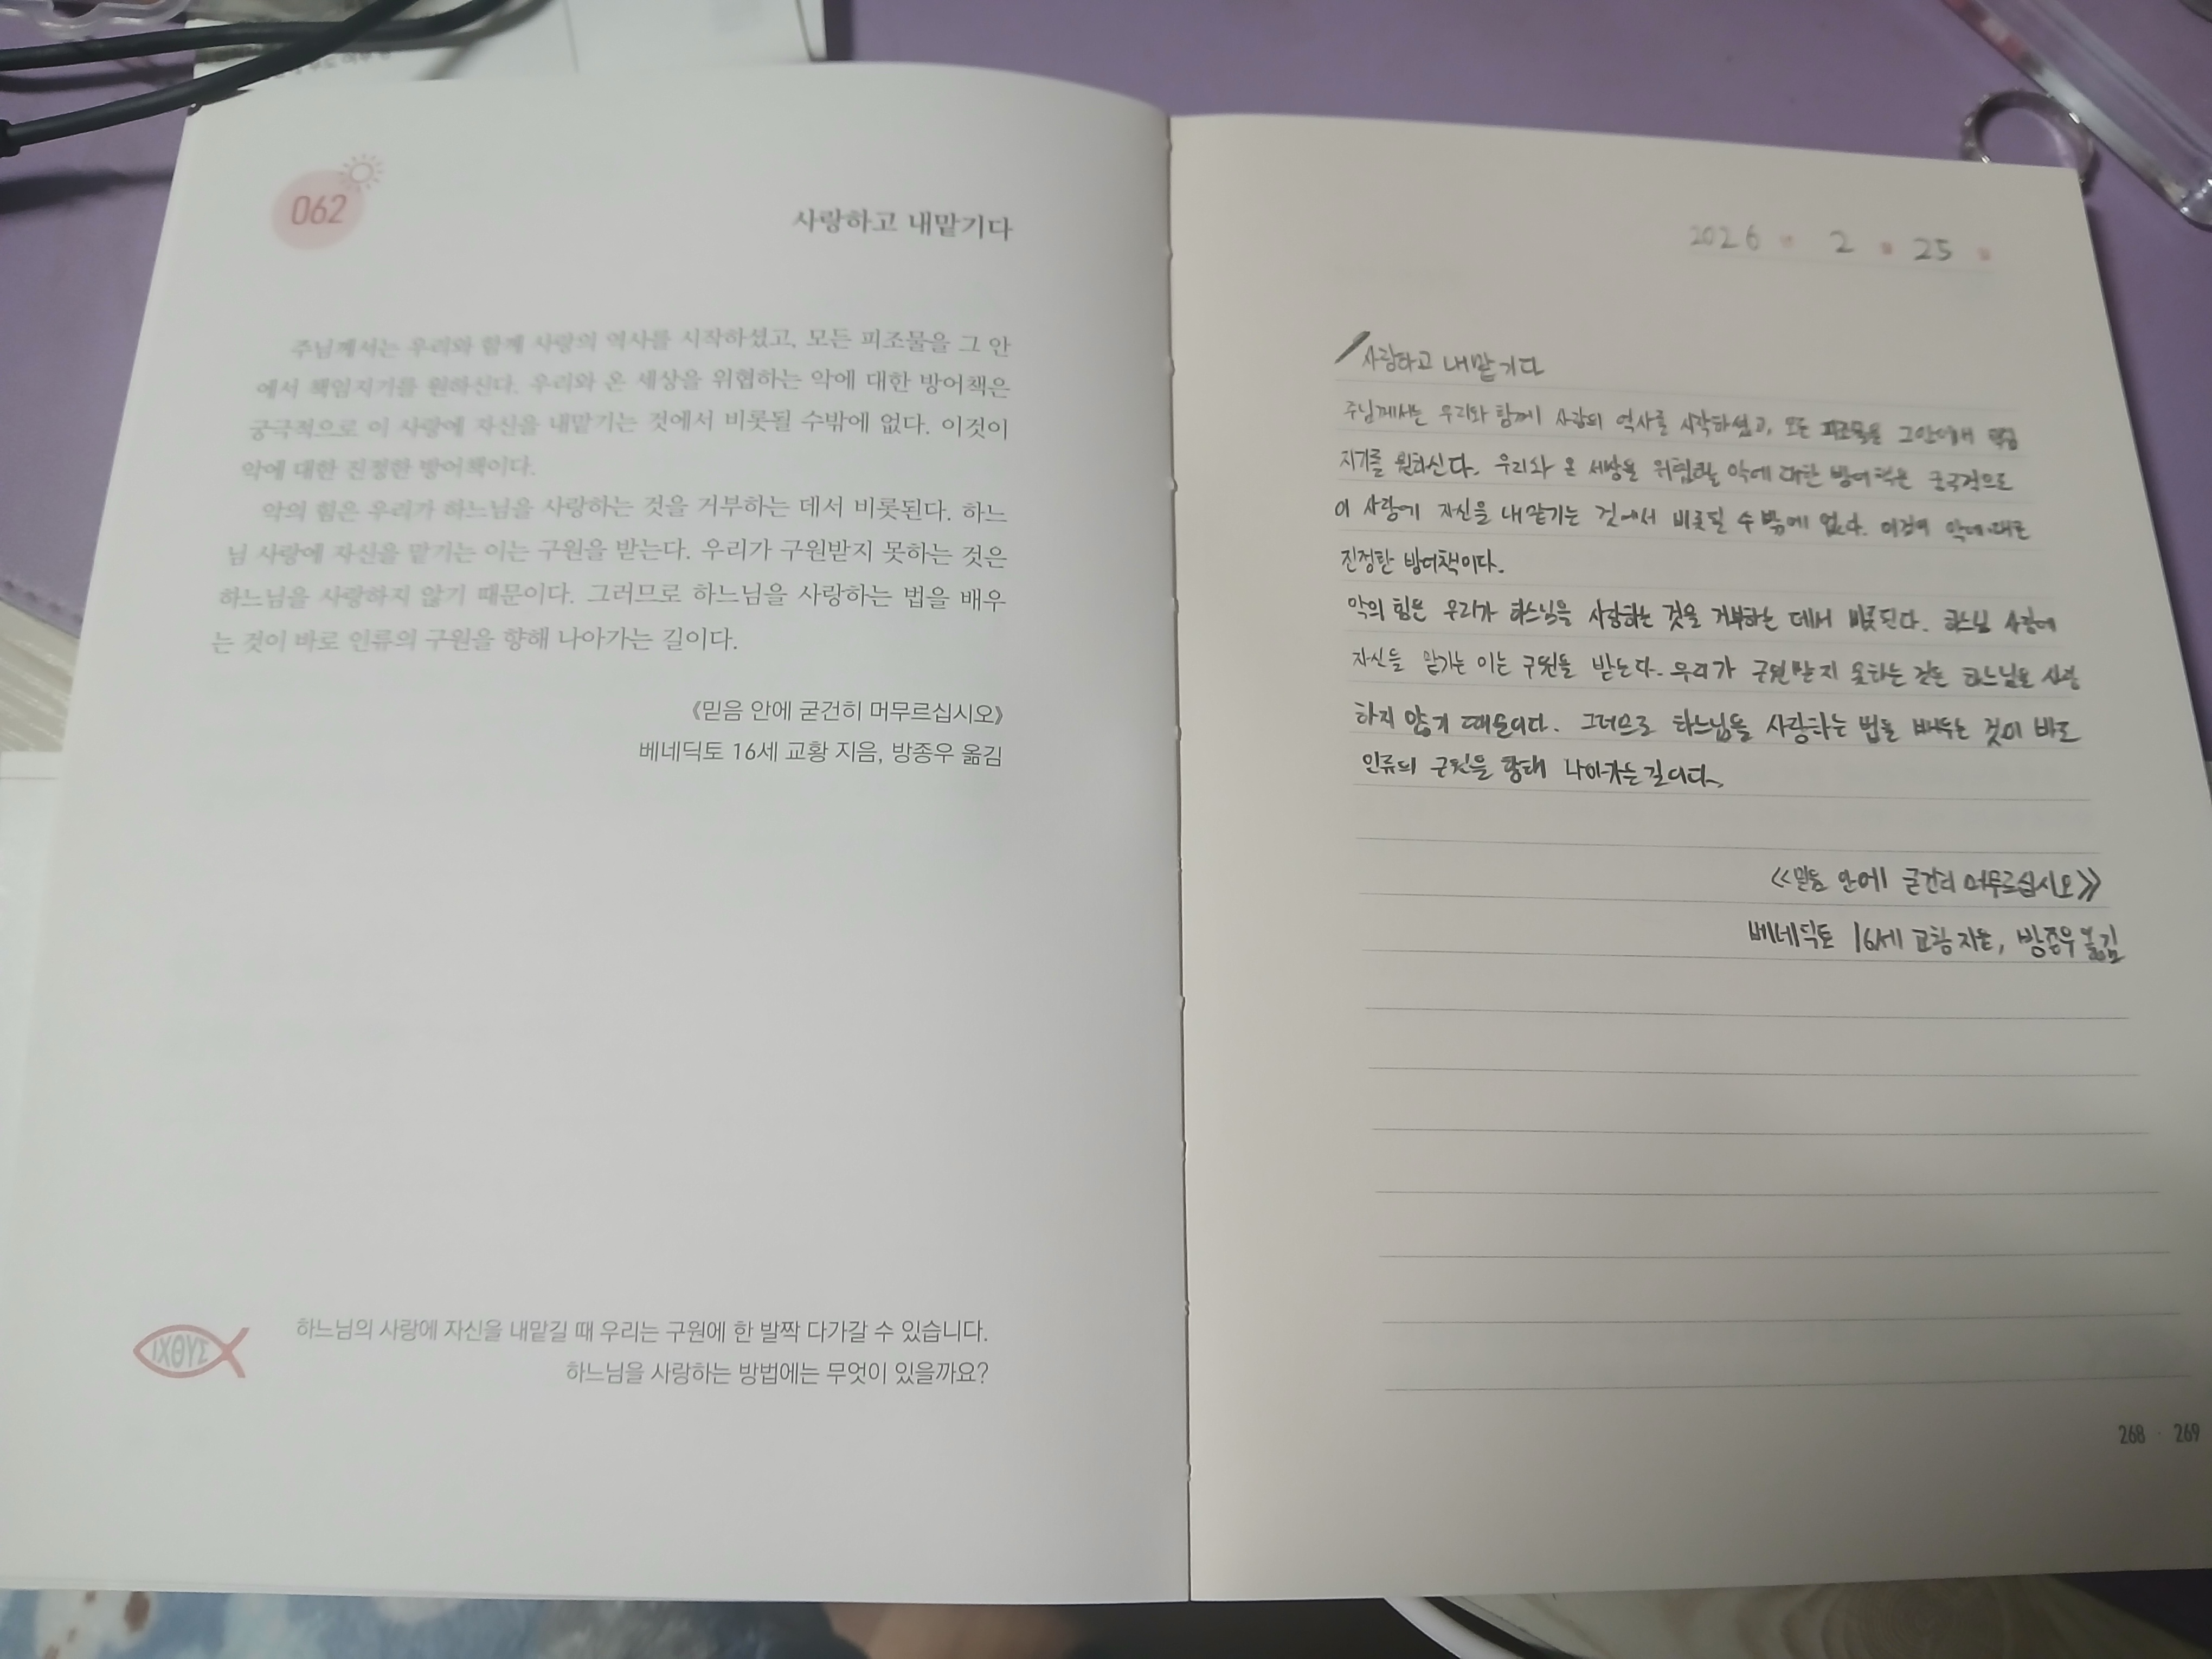 062
사랑하고 내맡기다
주님께서는 우리와 함께 사랑의 역사를 시작하셨고, 모든 피조물을 그 안
에서 책임지기를 원하신다. 우리와 온 세상을 위협하는 악에 대한 방어책은
궁극적으로 이 사랑에 자신을 내맡기는 것에서 비롯될 수밖에 없다. 이것이
악에 대한 진정한 방어책이다.
악의 힘은 우리가 하느님을 사랑하는 것을 거부하는 데서 비롯된다. 하느
님 사랑에 자신을 맡기는 이는 구원을 받는다. 우리가 구원받지 못하는 것은
하느님을 사랑하지 않기 때문이다. 그러므로 하느님을 사랑하는 법을 배우
는 것이 바로 인류의 구원을 향해 나아가는 길이다.
《믿음 안에 굳건히 머무르십시오》
베네딕토 16세 교황 지음, 방종우 옮김
하느님의 사랑에 자신을 내맡길 때 우리는 구원에 한 발짝 다가갈 수 있습니다.
하느님을 사랑하는 방법에는 무엇이 있을까요?
ΙΧΘΥΣ
2026 . 2 . 25 .
사랑하고 내맡기다
주님께서는 우리와 함께 사랑의 역사를 시작하셨고, 모든 피조물을 그안에서 책임
지기를 원하신다. 우리와 온 세상을 위협하는 악에 대한 방어책은 궁극적으로
이 사랑에 자신을 내맡기는 것에서 비롯될 수밖에 없다. 이것이 악에 대한
진정한 방어책이다.
악의 힘은 우리가 하느님을 사랑하는 것을 거부하는 데서 비롯된다. 하느님 사랑에
자신을 맡기는 이는 구원을 받는다. 우리가 구원받지 못하는 것은 하느님을 사랑
하지 않기 때문이다. 그러므로 하느님을 사랑하는 법을 배우는 것이 바로
인류의 구원을 향해 나아가는 길이다.
《믿음 안에 굳건히 머무르십시오》
베네딕토 16세 교황 지음, 방종우 옮김
268 · 269